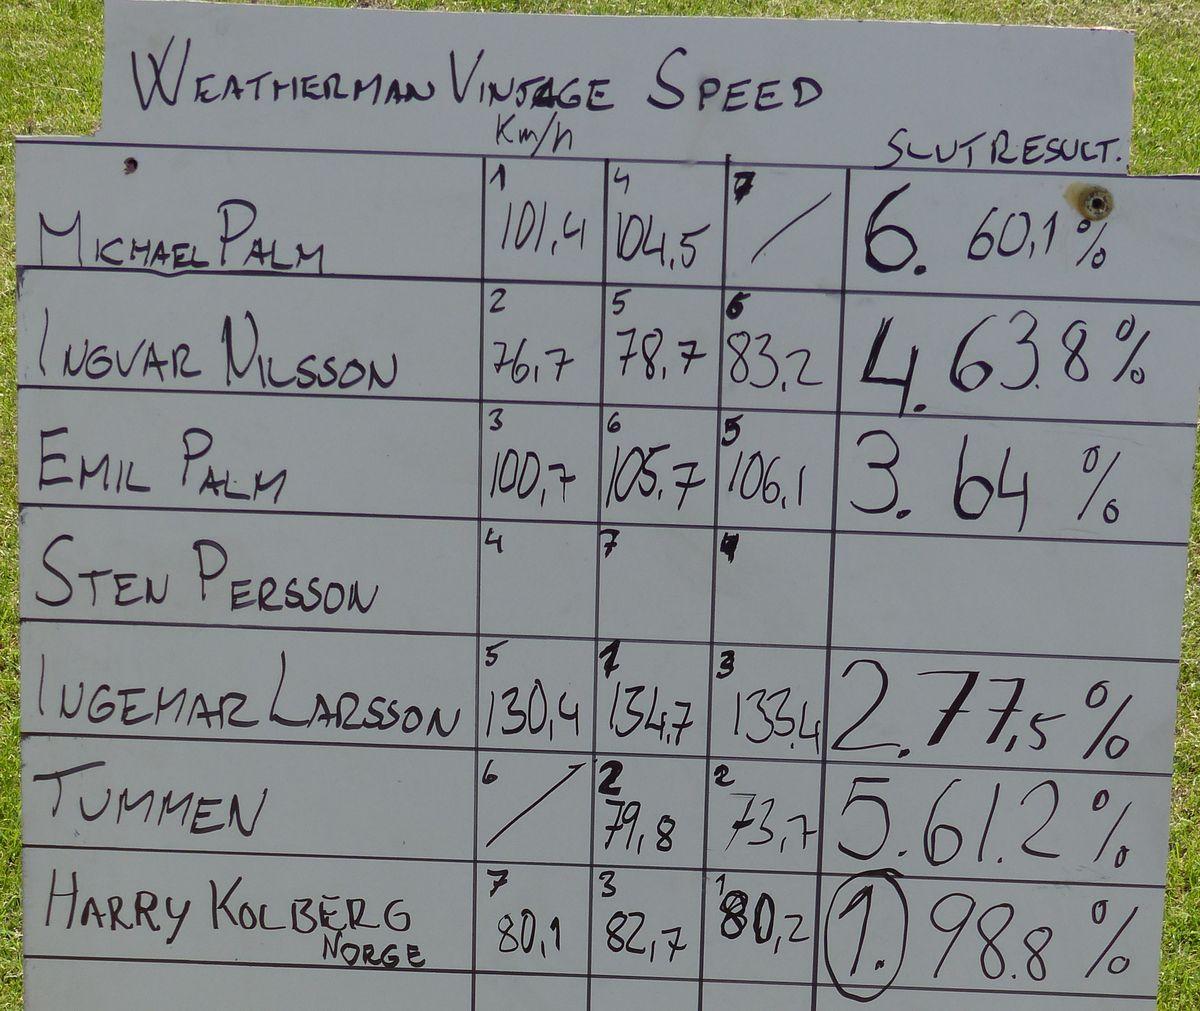 WEATHERMAN VINTAGE SPEED
Km/h
SLUTRESULT.
MICHAEL PALM 1 101,4 4 104,5 7 / 6. 60,1 %
INGVAR NILSSON 2 76,7 5 78,7 6 83,2 4. 63.8 %
EMIL PALM 3 100,7 6 105,7 5 106,1 3. 64 %
STEN PERSSON 4 7 4
INGEMAR LARSSON 5 130,4 1 134,7 3 133,4 2. 77,5 %
TUMMEN 6 / 2 79,8 2 73,7 5. 61.2 %
HARRY KOLBERG 7 80,1 3 82,7 1 80,2 1. 98.8 %
NORGE